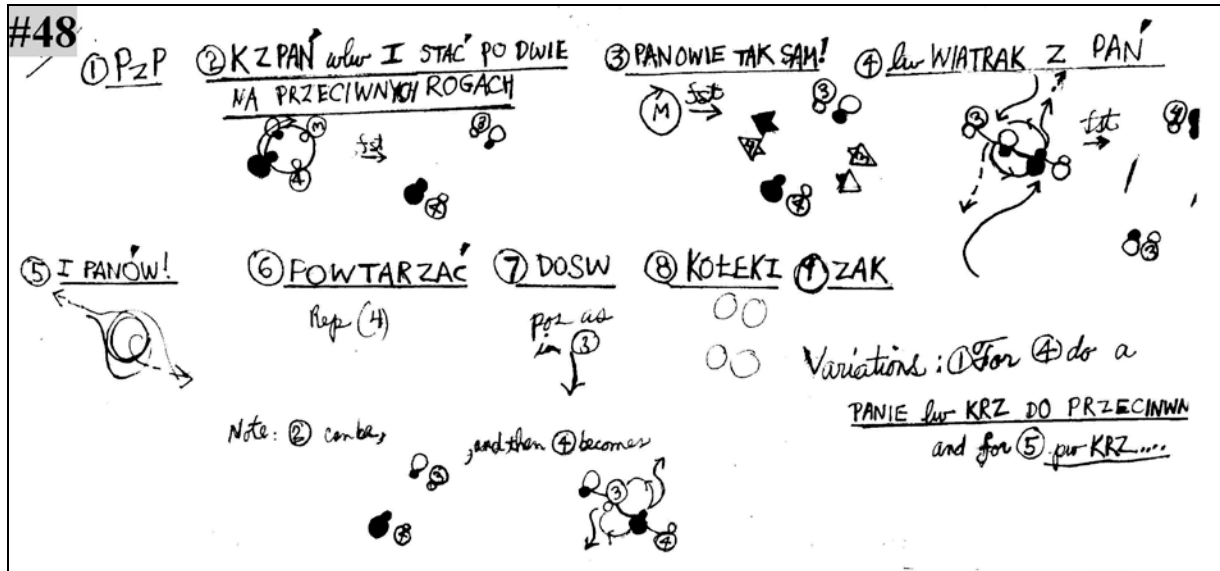 #48
① PzP
② K Z PAŃ wlw I STAĆ PO DWIE
NA PRZECIWNYCH ROGACH
M
4
fst
3
4
③ PANOWIE TAK SAM!
M
fst
3
4
④ lw WIATRAK Z PAŃ
3
fst
4
3
⑤ I PANÓW!
⑥ POWTARZAĆ
Rep (4)
⑦ DOSW
pos as
in ③
⑧ KÓŁEKI
⑨ ZAK
Variations: ① For ④ do a
PANIE lw KRZ DO PRZECINWN
and for ⑤ pw KRZ....
Note: ② can be,
3
4
, and then ④ becomes
3
4